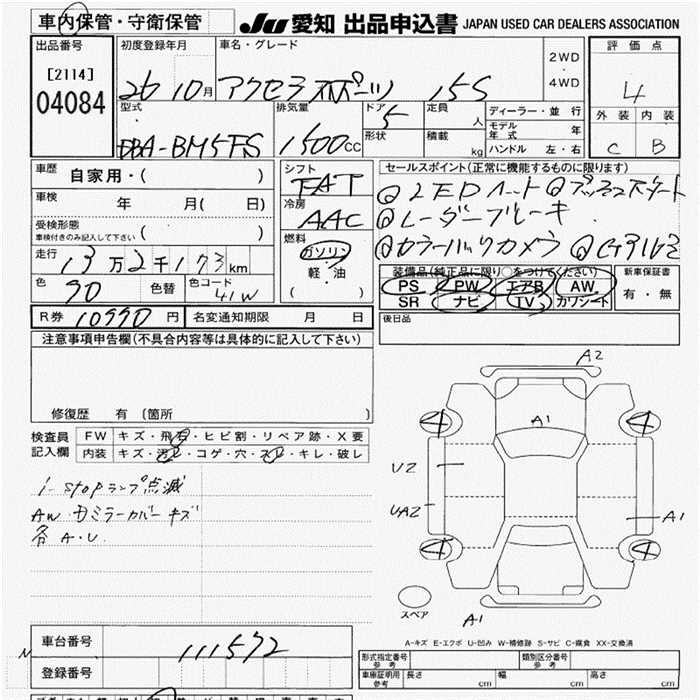 車内保管・守衛保管
JU 愛知 出品申込書 JAPAN USED CAR DEALERS ASSOCIATION
出品番号
[2114]
04084
初度登録年月
26 10月
車名・グレード
アクセラスポーツ 15S
2WD
4WD
評価点
4
外装 内装
C B
型式
DBA-BM5FS
排気量
1500cc
ドア
5
形状
定員
人
積載
kg
ディーラー・並行
モデル年式 年
ハンドル 左・右
車歴
自家用・( )
車検
年 月( 日)
受検形態
車検付きのみ記入して下さい ( )
走行
13万2千173km
色
90
色替
色コード
41W
シフト
FAT
冷房
AAC
燃料
ガソリン
軽・油
( )
セールスポイント(正常に機能するものに限ります)
レーダーブレーキ
装備品(純正品に限り○をつけてください)
PS PW エアB AW
SR ナビ TV カワシート
新車保証書
有・無
R券 10990円 名変通知期限 月 日
後日品
注意事項申告欄(不具合内容等は具体的に記入して下さい)
修復歴 有 〔箇所 〕
検査員
記入欄
FW キズ・飛石・ヒビ割・リペア跡・X要
内装 キズ・汚レ・コゲ・穴・スレ・キレ・破レ
i-stopランプ点滅
AW・カミラーカバーキズ
各A・U
A2
A1
4 4
U2
UA2
A1
4 4
スペア
A1
A-キズ E-エクボ U-凹み W-補修跡 S-サビ C-腐食 XX-交換済
車台番号
111572
登録番号
型式指定番号
参考
類別区分番号
参考
車庫証明用
参考
長さ cm 幅 cm 高さ cm